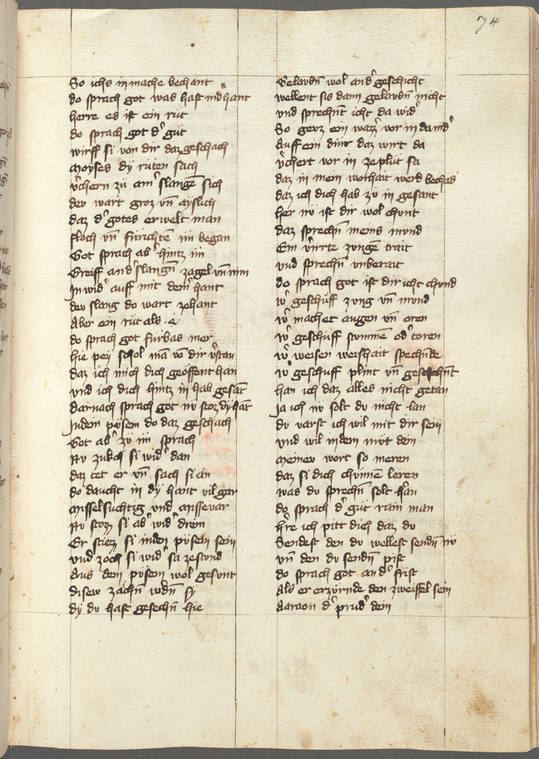 74
So ichs in mache bechant
do sprach got was hast in d' hant
herre es ist ein rut
do sprach got d' gut
wirff si von dir daz geschach
Moyses dy ruten sach
v'chern zu ain' slangen sich
der wart groz vn̄ ayslich
daz d' gotes erwelt man
floch vn̄ furichten im began
Got sprach ab' hintz im
Greiff and' slangn̄ zagel vn̄ nim
In wid' auff mit dein' hant
der slang do wart zehant
Aber ein rut als e
do sprach got furbas mer
hie pey schol man dir
daz ich mich dich geoffent han
vnd ich dich hintz in hab gesant
darnach sprach got nv stoz dy hant
In den pusen do daz geschach
Got ab' zu im sprach
Nv zukch si wid' dan
daz tet er vn̄ sach si an
do daucht in dy hant vil gar
Misselsuchtig vnd missevar
Nv stoz si ab' wid' drein
Er stiez si in den pusem sein
vnd zoch si wid' sa zestund
Aus dem pusem wol gesunt
disew zaichn̄ wdn̄ sy
dy du hast gesechn̄ hie
Gelaubn̄ wol and' geschicht
wellent sis dann gelaubn̄ nicht
vnd sprechn̄t icht da wid'
So geuz ein wazz' vor in da nid'
Auff ein durr daz wirt da
v'chert vor in ze plut sa
daz in mein warhait werd bechant
daz ich dich hab zu in gesant
her nv ist dir wol chunt
daz sprechn̄ meins mund
Ein virrte zunge trait
vnd sprechn̄ vnberait
do sprach got ist dir icht chund
w' geschuff zung vn̄ mund
w' machet augen vn̄ oren
w' geschuff stummen od' toren
w' weisen weishait spechnde
w' geschuff plint vn̄ gesechn̄t
han ich daz alles nicht getan
Ja ich nv solt du nicht lan
du varst ich wil mit dir sein
vnd wil in dem mut dein
Meinew wort so meren
daz si dich chunnen leren
was du sprechn̄ solt san
do sprach d' gut rain man
h're ich pitt dich daz du
Sendest den du wellest sendn̄ nv
vn̄ den du sendn̄ pist
do sprach got and' frist
Als er erzurnde den zweiffel sein
Aaraon d' prud' dein